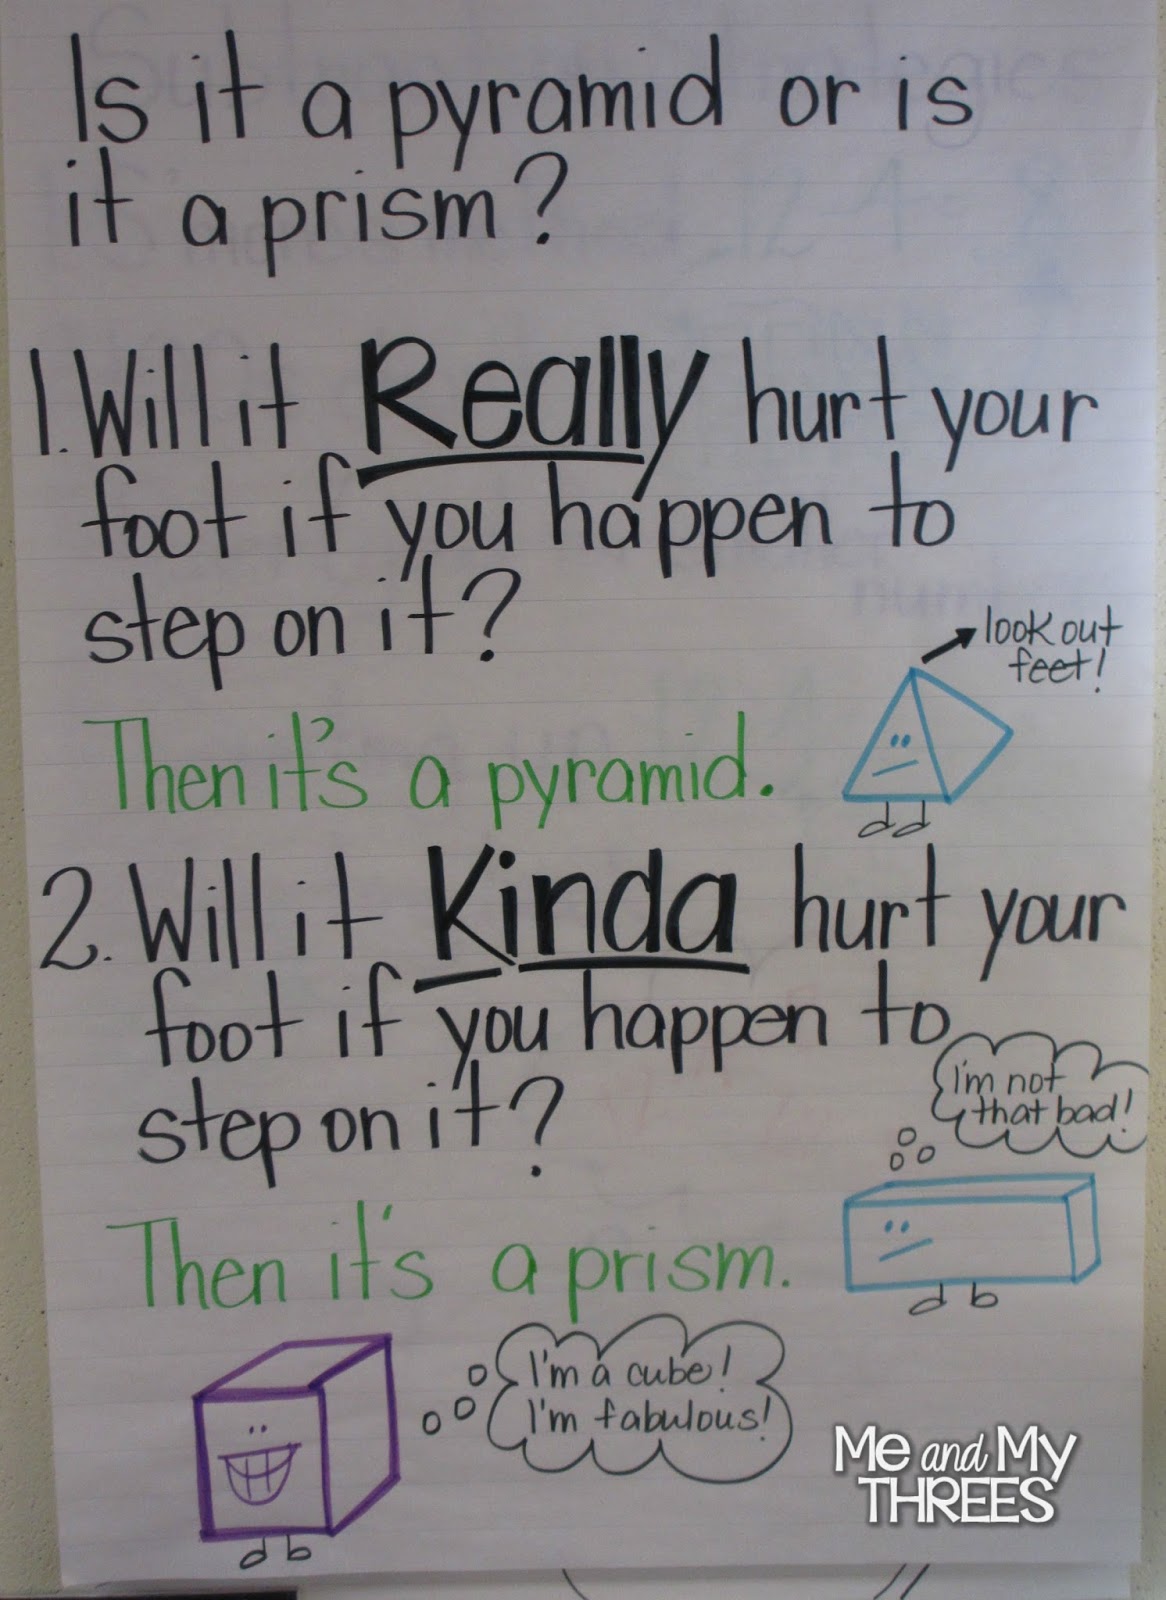 Is it a pyramid or is
it a prism?
1. Will it Really hurt your
foot if you happen to
step on it?
look out
feet!
Then it's a pyramid.
2. Will it Kinda hurt your
foot if you happen to
step on it?
I'm not
that bad!
Then it's a prism.
I'm a cube!
I'm fabulous!
Me and My
THREES